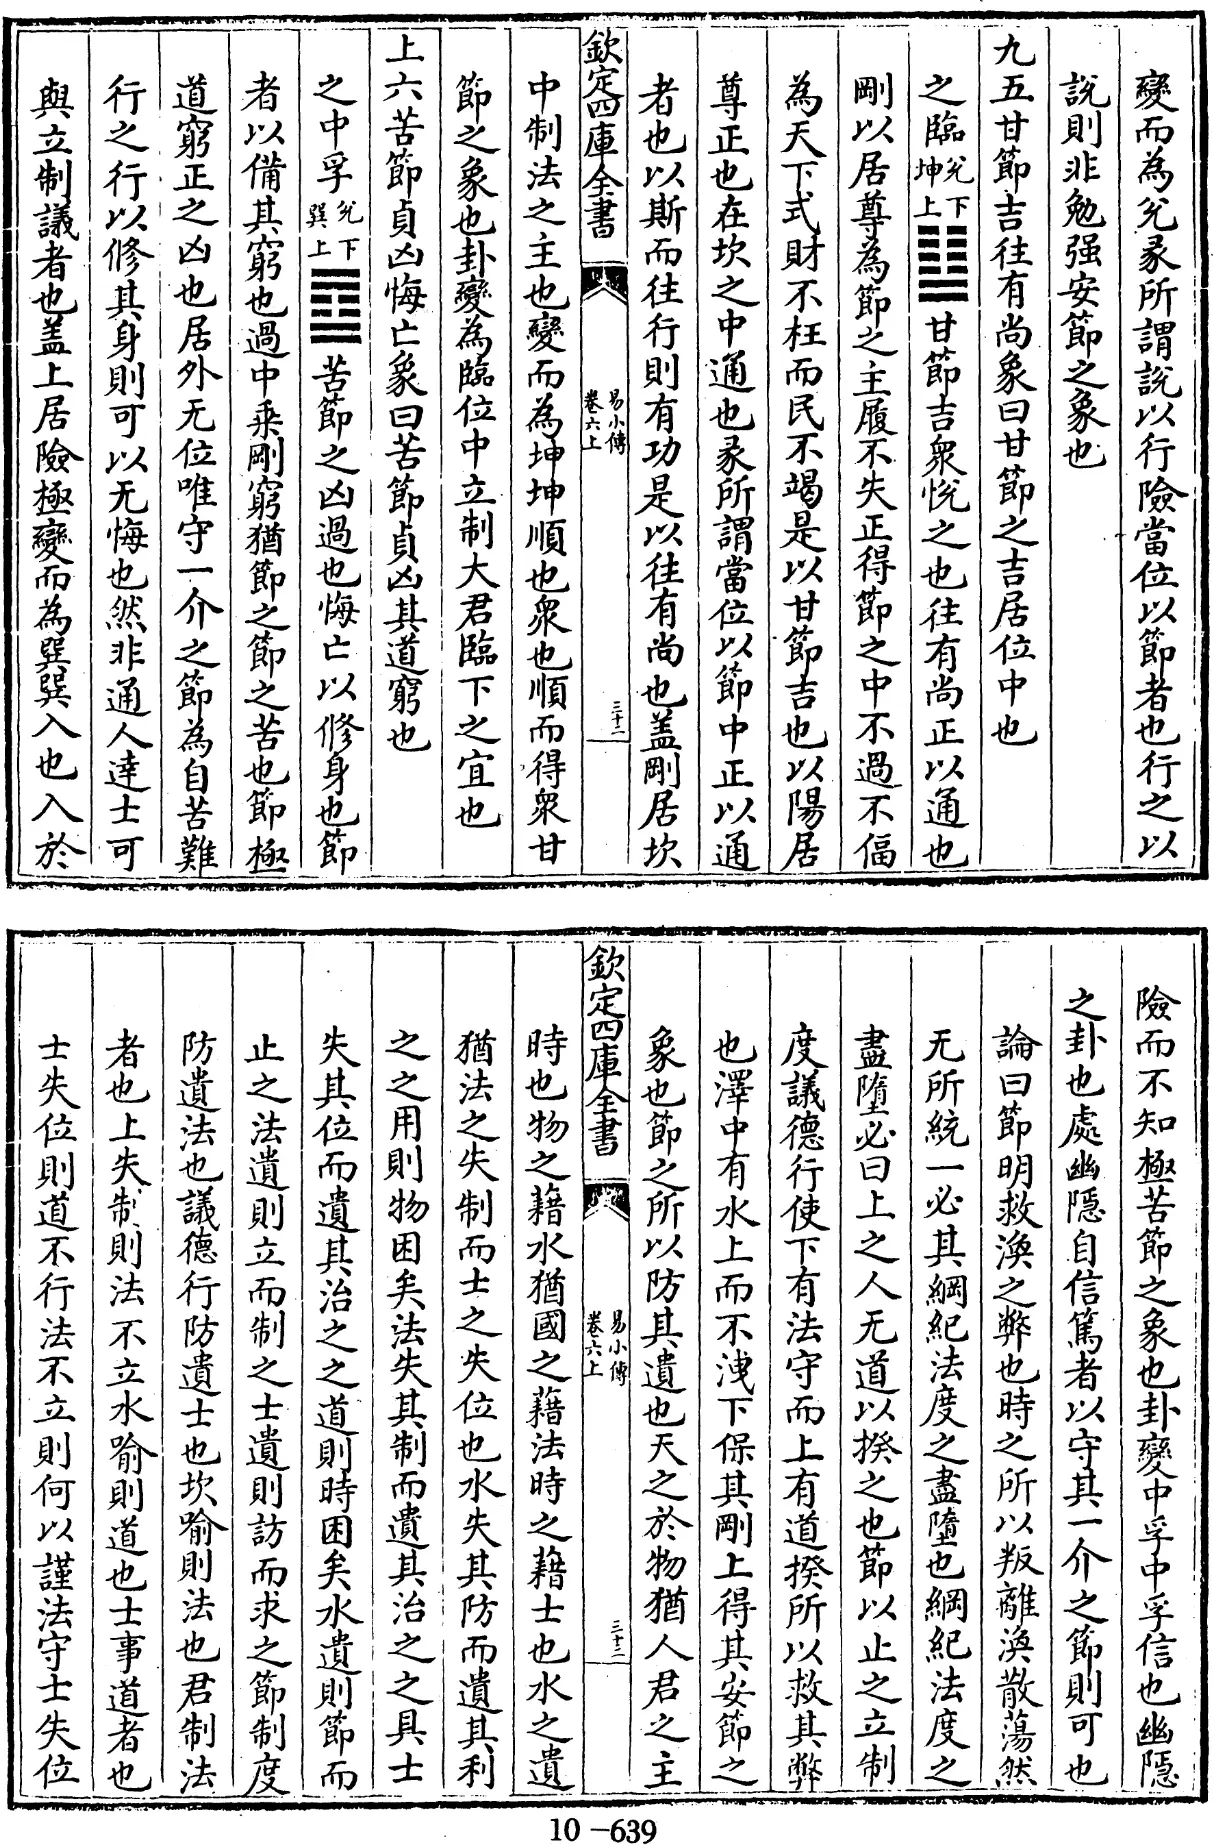 變而為兊彖所謂說以行險當位以節者也行之以
說則非勉强安節之象也
九五甘節吉往有尚象曰甘節之吉居位中也
之臨兊下坤上䷒甘節吉衆悅之也往有尚正以通也
剛以居尊為節之主履不失正得節之中不過不偪
為天下式財不枉而民不竭是以甘節吉也以陽居
尊正也在坎之中通也彖所謂當位以節中正以通
者也以斯而往行則有功是以往有尚也盖剛居坎
欽定四庫全書
易小傳
卷六上
三十二
中制法之主也變而為坤坤順也衆也順而得衆甘
節之象也卦變為臨位中立制大君臨下之宜也
上六苦節貞凶悔亡象曰苦節貞凶其道窮也
之中孚兊下巽上䷼苦節之凶過也悔亡以修身也節
者以備其窮也過中乘剛窮猶節之節之苦也節極
道窮正之凶也居外无位唯守一介之節為自苦難
行之行以修其身則可以无悔也然非通人達士可
與立制議者也盖上居險極變而為巽巽入也入於
險而不知極苦節之象也卦變中孚中孚信也幽隱
之卦也處幽隱自信篤者以守其一介之節則可也
論曰節明救渙之弊也時之所以叛離渙散蕩然
无所統一必其綱紀法度之盡墮也綱紀法度之
盡墮必曰上之人无道以揆之也節以止之立制
度議德行使下有法守而上有道揆所以救其弊
也澤中有水上而不洩下保其剛上得其安節之
象也節之所以防其遺也天之於物猶人君之主
欽定四庫全書
易小傳
卷六上
三十三
時也物之藉水猶國之藉法時之藉士也水之遺
猶法之失制而士之失位也水失其防而遺其利
之之用則物困矣法失其制而遺其治之之具士
失其位而遺其治之之道則時困矣水遺則節而
止之法遺則立而制之士遺則訪而求之節制度
防遺法也議德行防遺士也坎喻則法也君制法
者也上失制則法不立水喻則道也士事道者也
士失位則道不行法不立則何以謹法守士失位
10-639